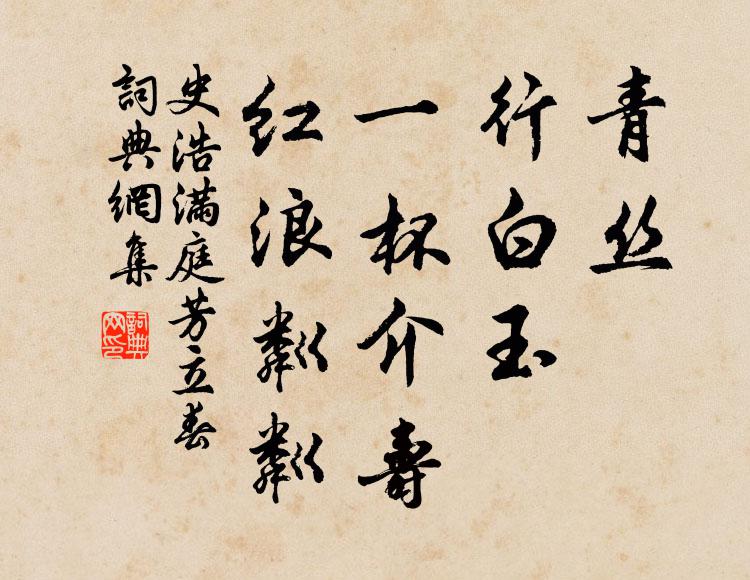 青丝
行白玉
一杯介壽
红浪粼粼
史浩滿庭芳立春
詞典網集
詞典
网印